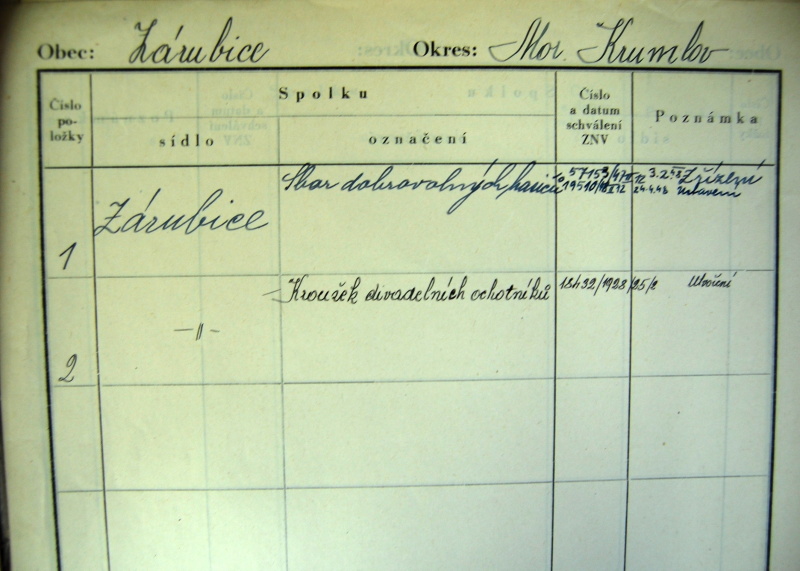 Obec: Zárubice Okres: Mor. Krumlov
Číslo po- ložky
Spolku
sídlo
označení
Číslo a datum schválení ZNV
Poznámka
1 Zárubice Sbor dobrovolných hasičů 3.2.48 Zřízení
24.4.48 Ustavení
2 —〃— Kroužek divadelních ochotníků 18432/1928/25/2 Utvoření